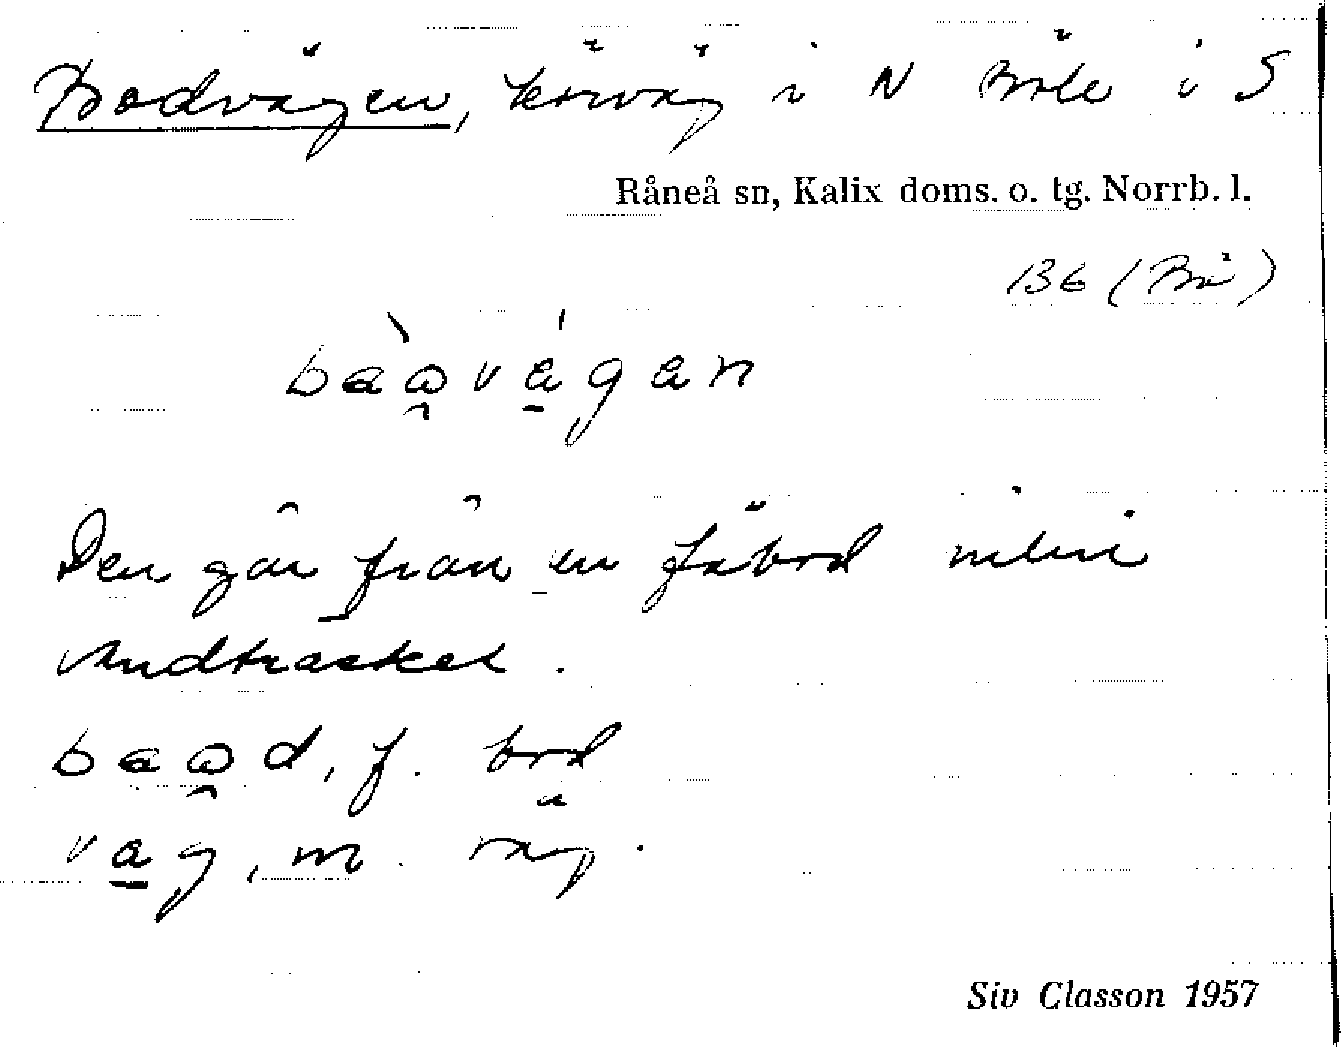 Bodvägen, körväg i N Böle i S
Råneå sn, Kalix doms. o. tg. Norrb. l.
136 (Bö)
bàa̯vágan
Den går från en fäbod intill
Andträsket.
baa̯d, f. bod
vag, m. väg.
Siv Classon 1957